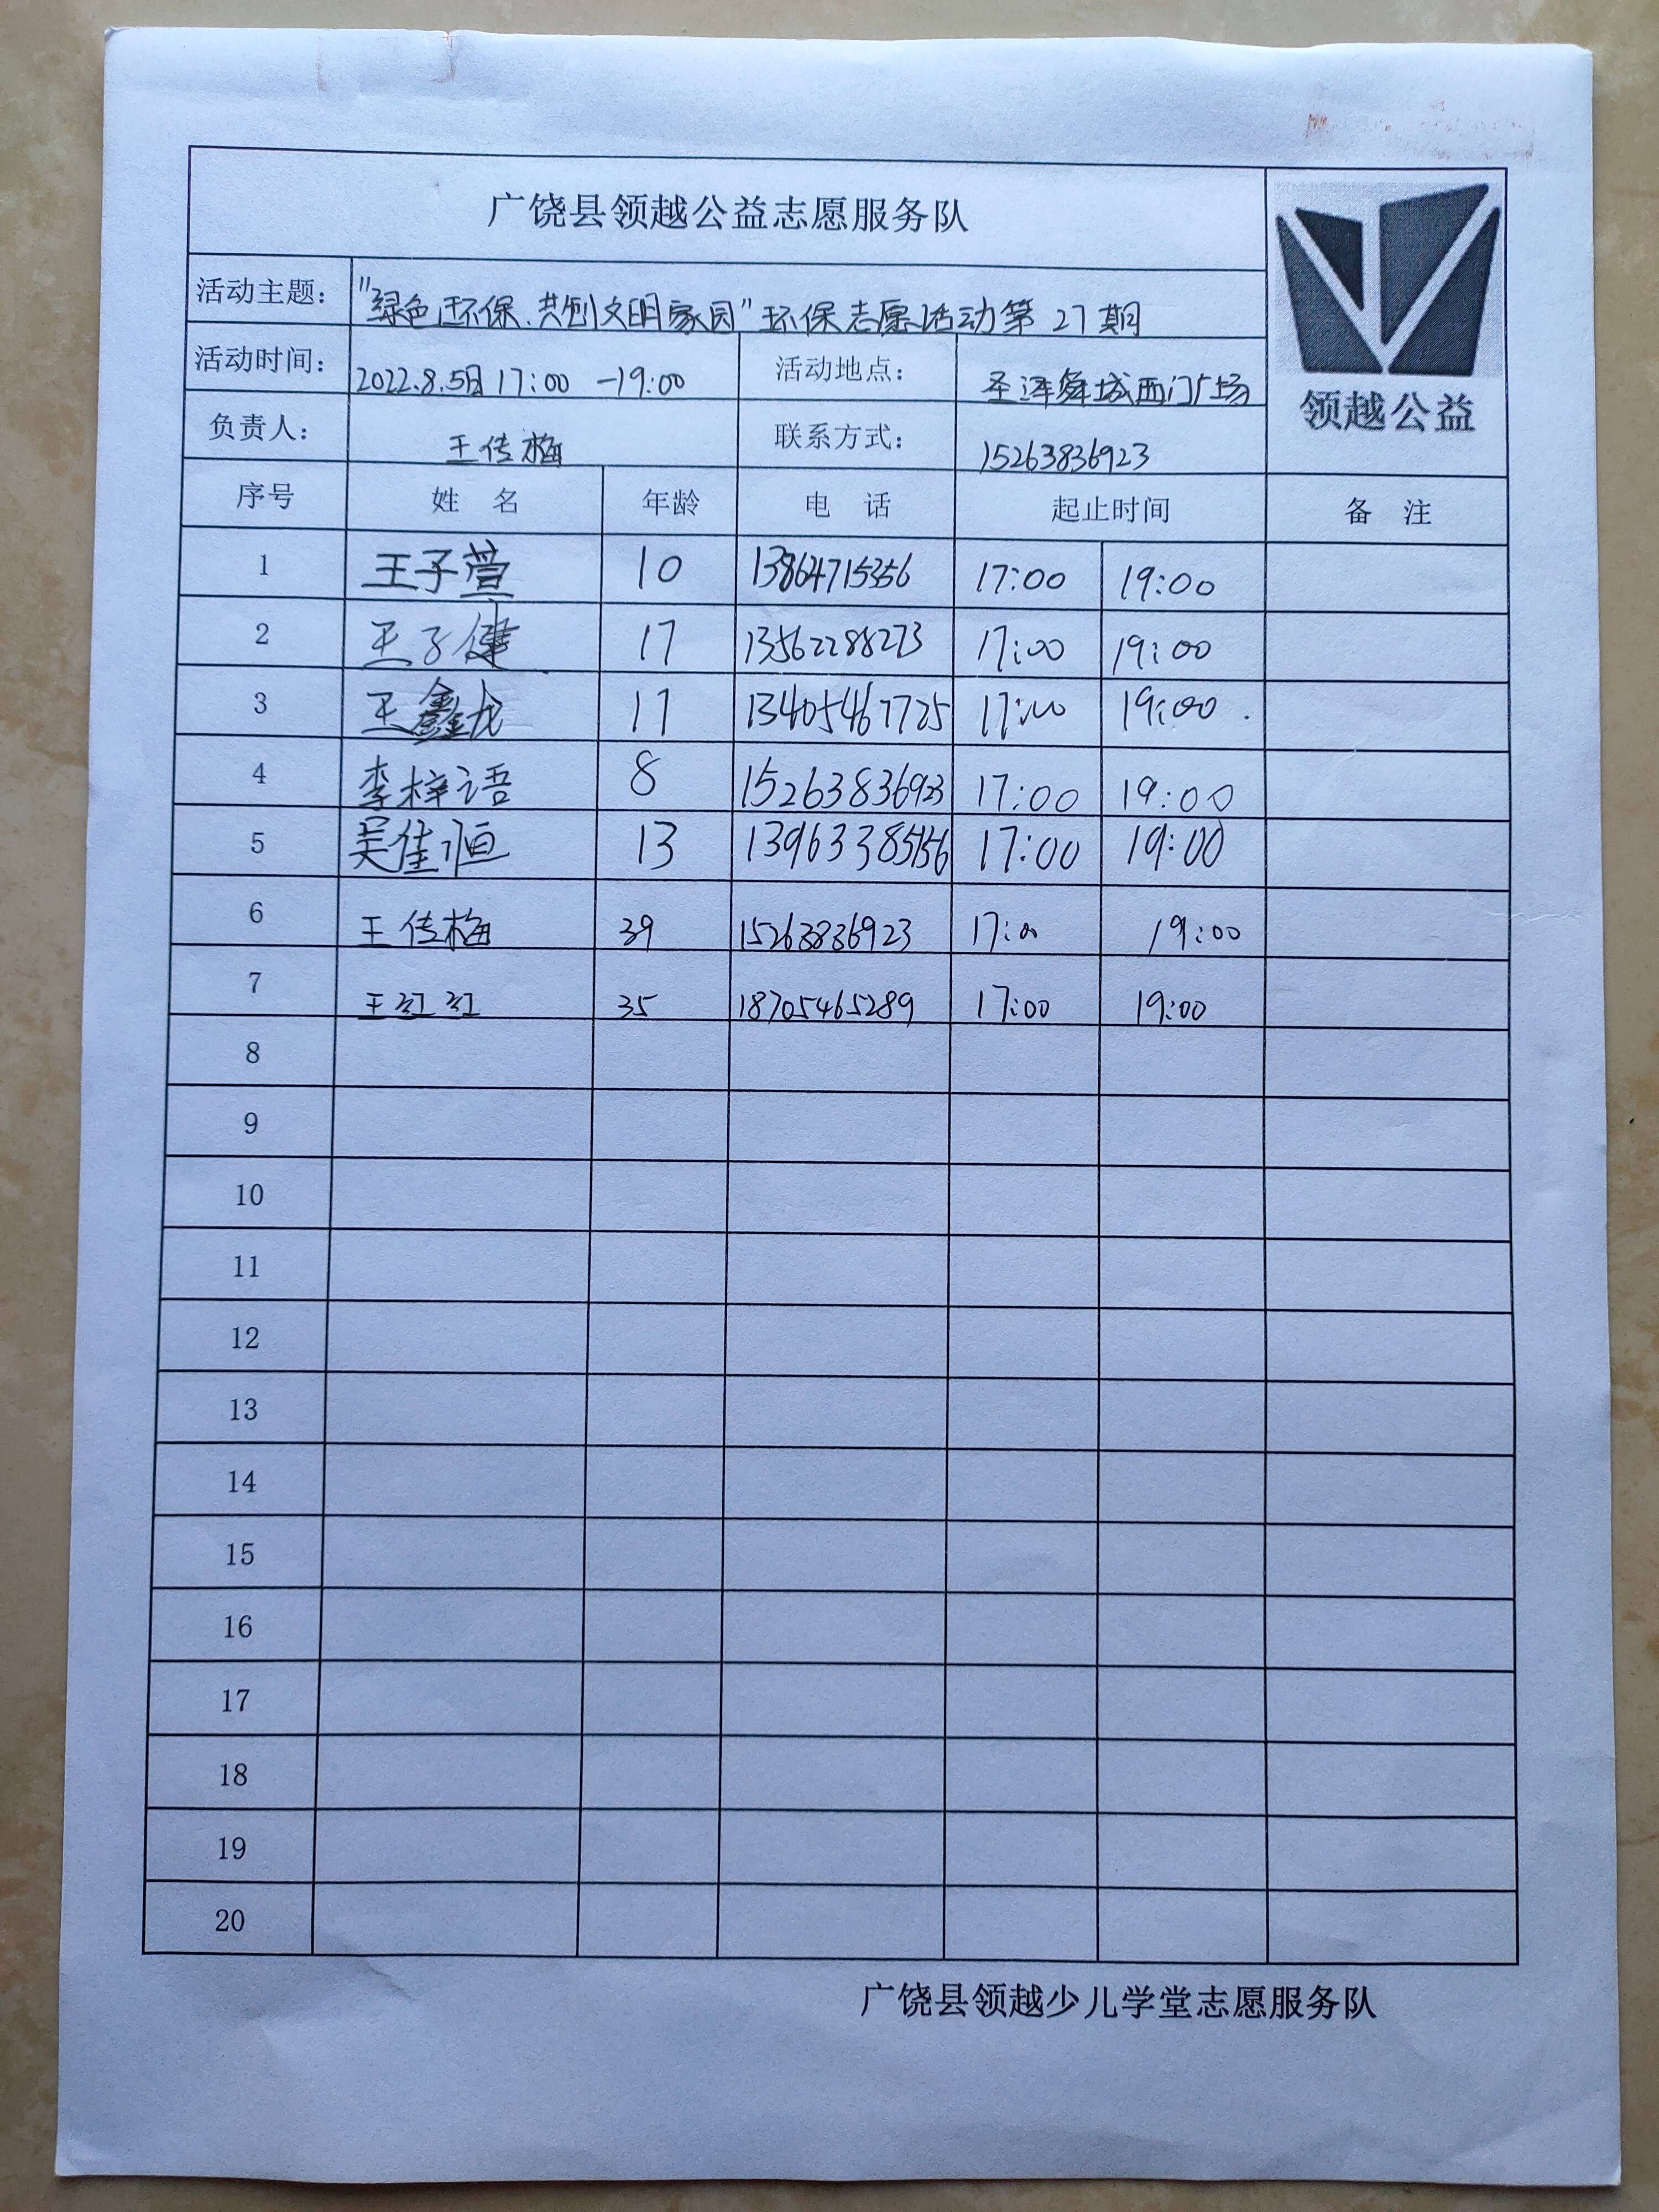 广饶县领越公益志愿服务队
领越公益
活动主题： "绿色环保.共创文明家园"环保志愿活动第27期
活动时间： 2022.8.5日17:00 -19:00 活动地点： 圣泽舜城西门广场
负责人： 王传梅 联系方式： 15263836923
序号 姓 名 年龄 电 话 起止时间 备 注
1 王子萱 10 13864715356 17:00 19:00
2 王子健 17 13562288273 17:00 19:00
3 王鑫龙 17 13405467725 17:00 19:00
4 李梓语 8 15263836923 17:00 19:00
5 吴佳恒 13 17:00 19:00
6 王传梅 39 15263836923 17:00 19:00
7 王红红 35 18705465289 17:00 19:00
8
9
10
11
12
13
14
15
16
17
18
19
20
广饶县领越少儿学堂志愿服务队